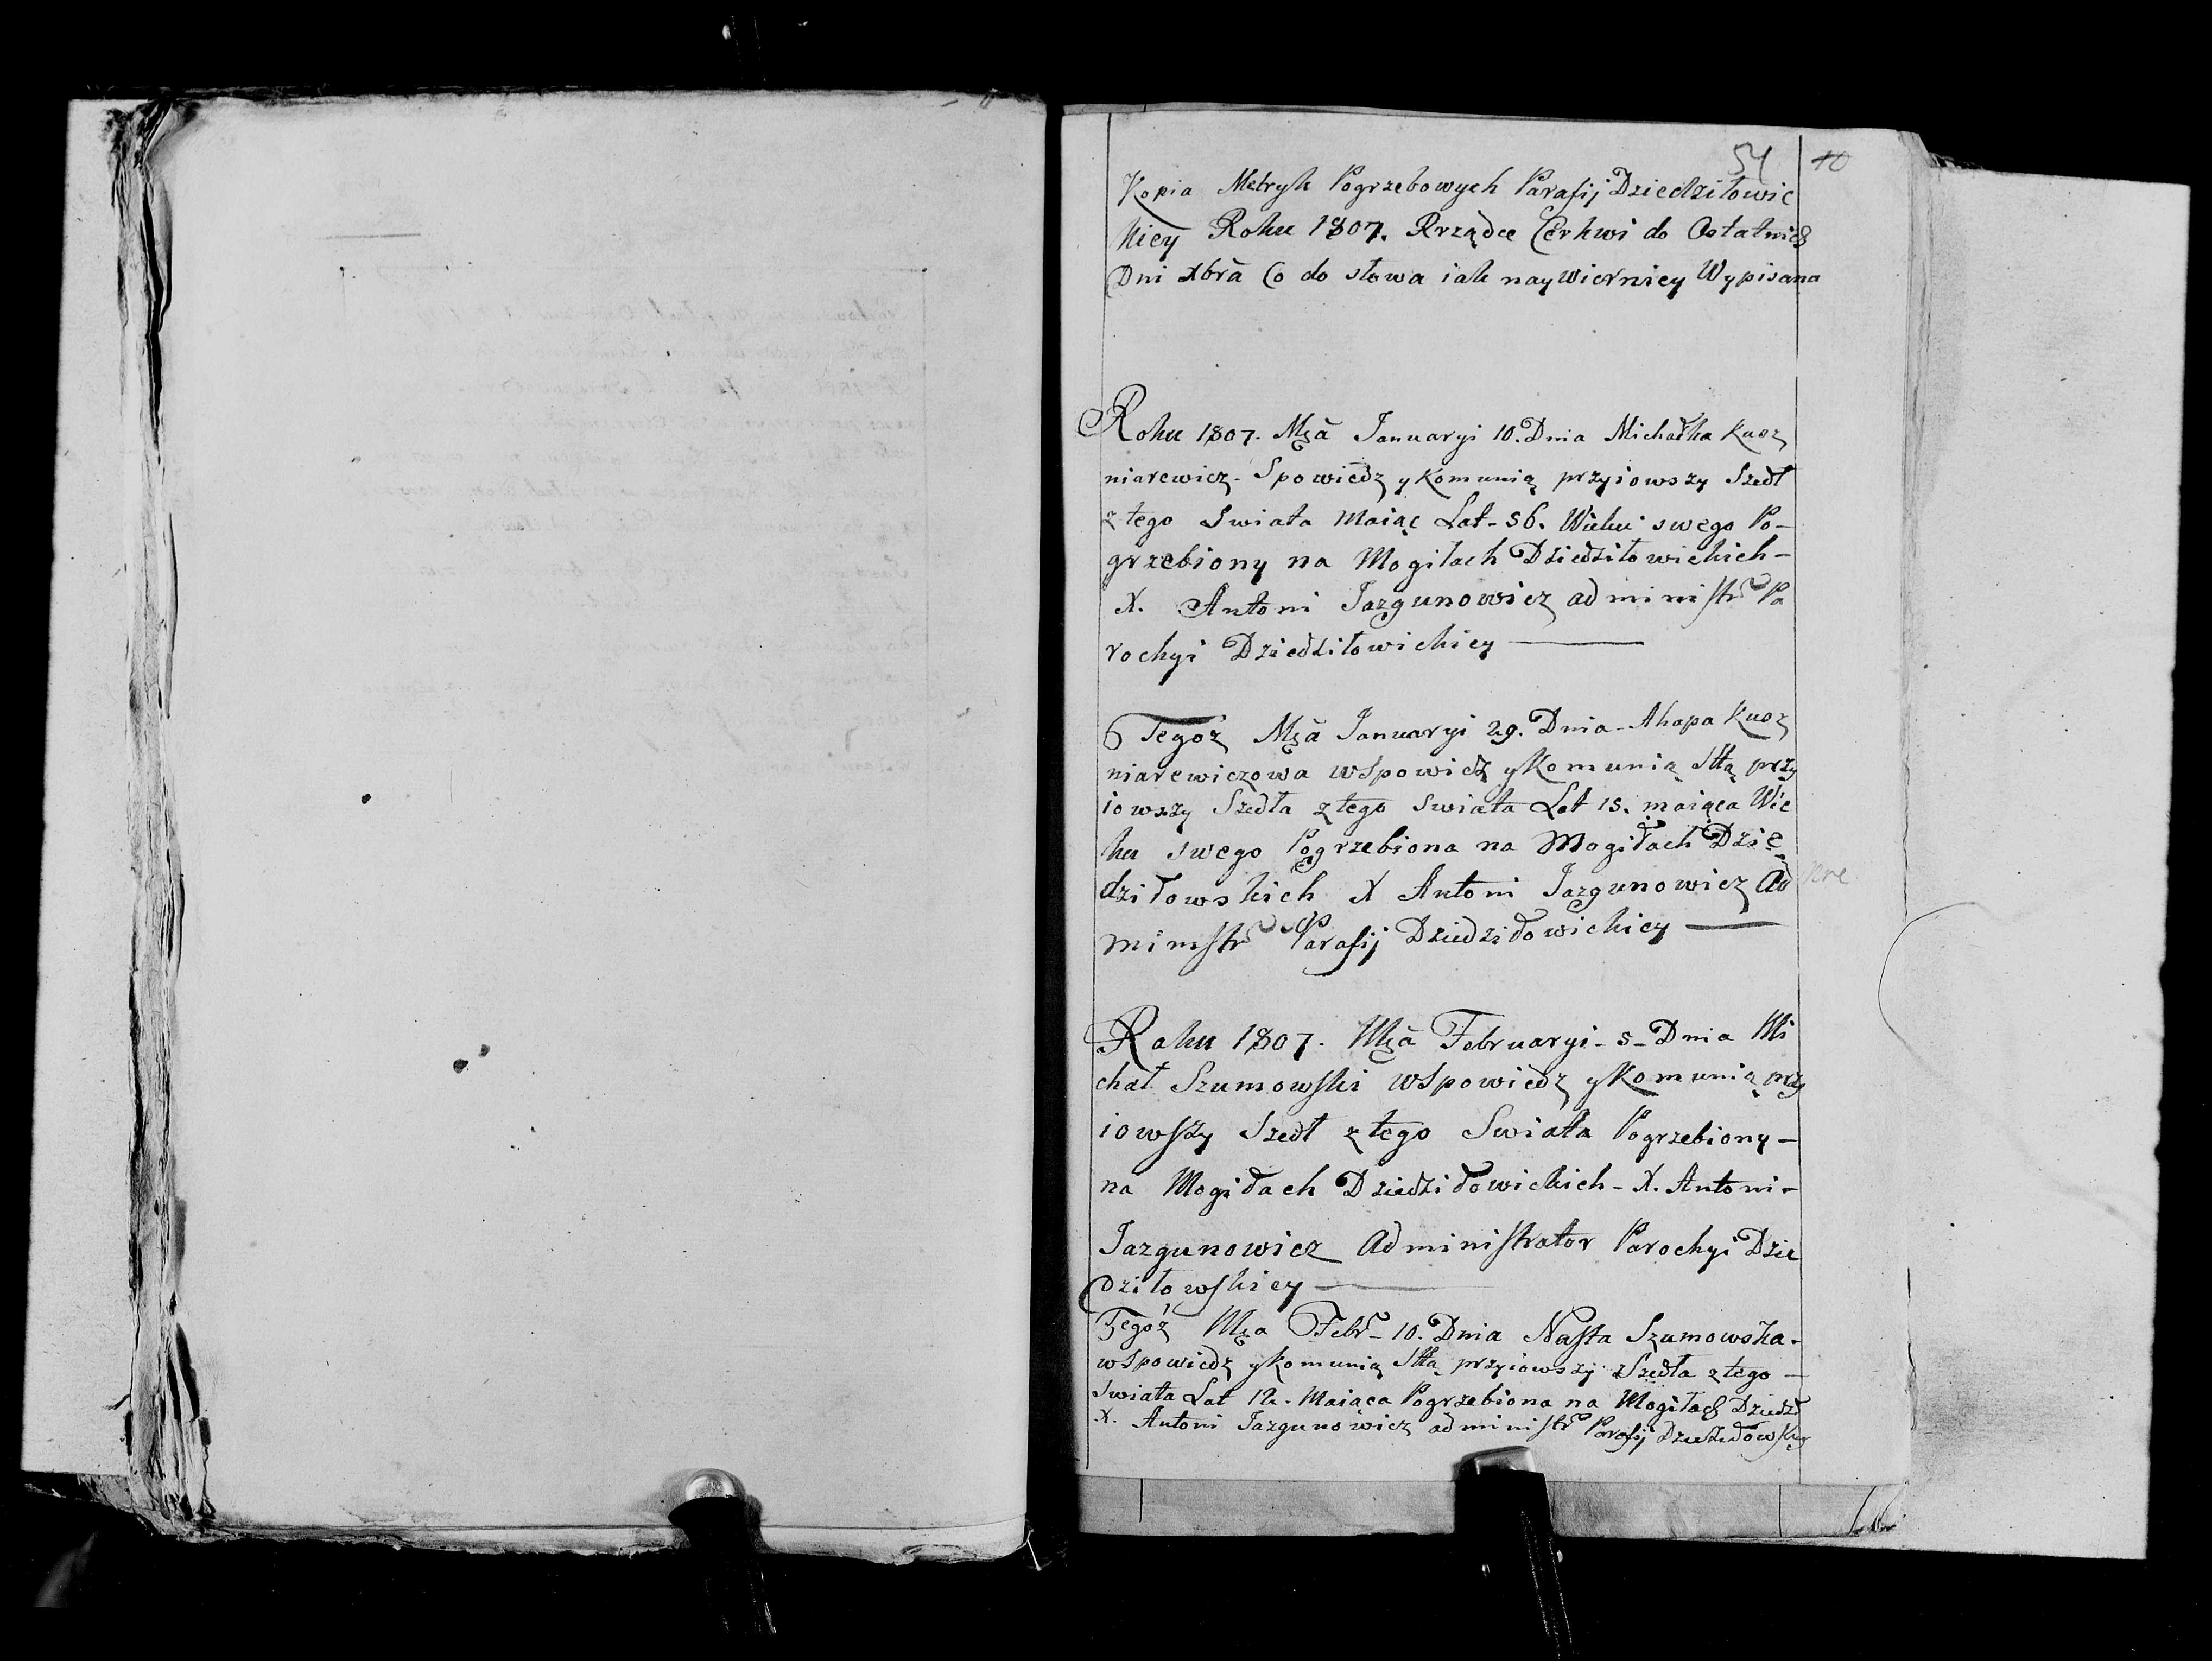 54 10
Kopia Metryk Pogrzebowych Parafij Dziedziłowic
kiey Roku 1807. Rrządce Cerkwi do Ostatnich
Dni Xbrã Co do słowa iak naywierniey Wypisana
Roku 1807. Mςã Januaryi 10. Dnia Michałka Kuoz
niarewicz. Spowiedz y Komunią przyiowszy Szedł
z tego Swiata Maiąc Lat - 56. Wieku swego Po-
grzebiony na Mogiłach Dziedziłowickich -
X. Antoni Jazgunowicz administr Pa
rochyi Dziedziłowickiey
Tegoż Mςã Januaryi 29. Dnia - Ahapa Kuoz
niarewiczowa wSpowiedz y Komunią Stą przy
iowszy Szedła z tego Swiata Lat 15. maiąca Wie
ku swego Pogrzebiona na Mogiłach Dzie
dziłowskich X Antoni Jazgunowicz Ad
ministr Parafij Dziedziłowickiey
Roku 1807. Mςã Februaryi - 5 - Dnia Mi
chał Szumowski wSpowiedz y Komunią przy
iowszy Szedł z tego Swiata Pogrzebiony -
na Mogiłach Dziedziłowickich - X. Antoni -
Jazgunowicz Administrator Parochyi Dzie
dziłowskiey
Tegoż Mςa Febr - 10. Dnia Nasta Szumowska -
wSpowiedz y Komunią Stą przyiowszy Szedła z tego -
Swiata Lat 12. Maiąca Pogrzebiona na Mogiłach Dziedził
X. Antoni Jazgunowicz administr Parafij Dziedziłowskiey